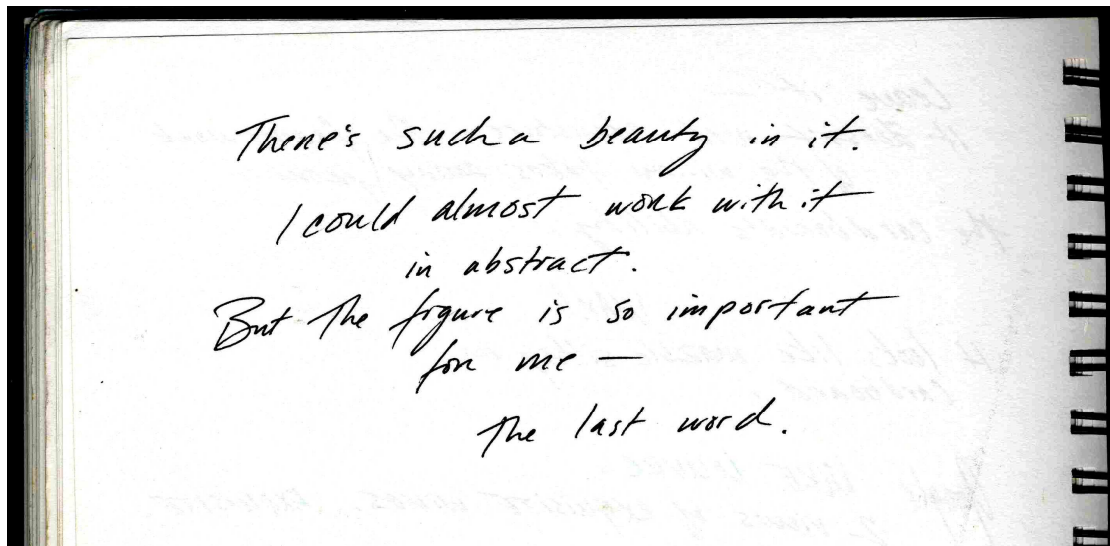 There's such a beauty in it.
I could almost work with it
in abstract.
But the figure is so important
for me —
the last word.